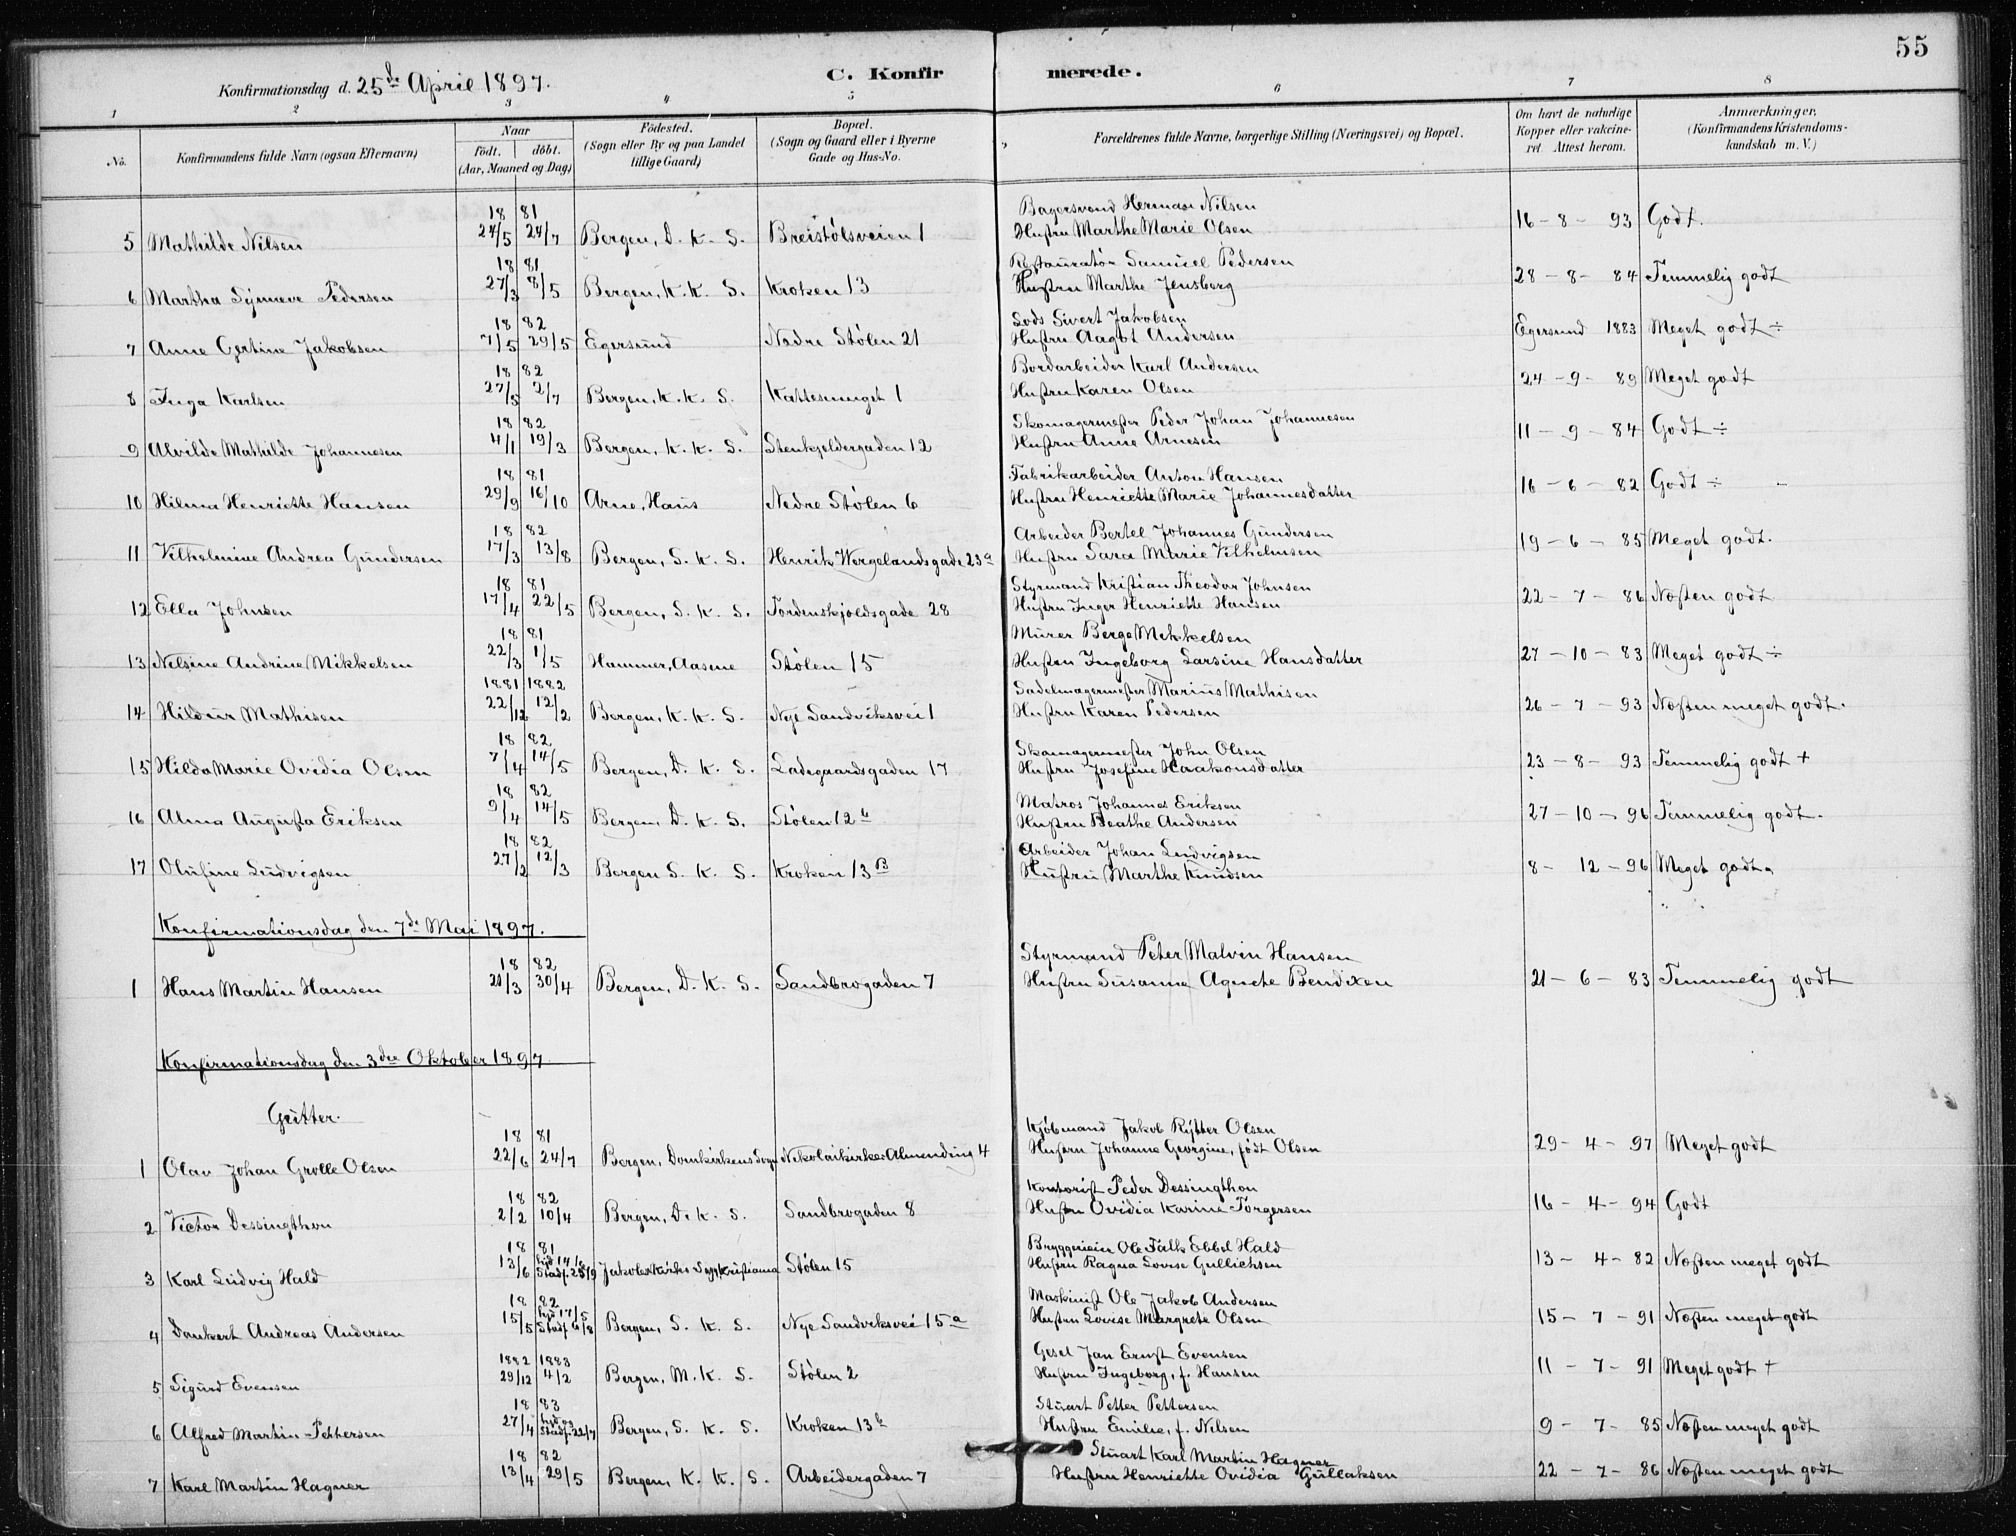 55
C. Konfirmerede.
Konfirmationsdag d. 25de April 1897.
1 2 3 4 5 6 7 8
No. Konfirmandens fulde Navn (ogsaa Efternavn) Naar födt. döbt. (Aar, Maaned og Dag) Födested. (Sogn eller By og paa Landet tillige Gaard) Bopæl. (Sogn og Gaard eller i Byerne Gade og Hus-No. Forældrenes fulde Navne, borgerlige Stilling (Næringsvei) og Bopæl. Om havt de naturlige Kopper eller vakcineret Attest herom. Anmærkninger. (Konfirmandens Kristendomskundskab m. V.)
18 81 Bagersvend Herman Nilsen
5 Mathilde Nilsen 24/5 24/7 Bergen, D. K. S. Breistølsveien 1 Hustru Marthe Marie Olsen 16 - 8 - 93 Godt.
18 81 Restauratør Samuel Pedersen
6 Martha Synneve Pedersen 27/3 8/5 Bergen, K. K. S. Kroken 13 Hustru Marthe Jensberg 28 - 8 - 84 Temmelig godt
18 82 Lods Sivert Jakobsen
7 Anne Gertine Jakobsen 7/5 29/5 Egersund Nedre Stølen 21 Hustru Aagot Andersen Egersund 1883 Meget godt ÷
18 82 Bordarbeider Karl Andersen
8 Inga Karlsen 27/5 2/7 Bergen, K. K. S. Kattesmuget 1 Hustru Karen Olsen 24 - 9 - 89 Meget godt
18 82 Skomagermester Peder Johan Johannesen
9 Alvilde Mathilde Johannesen 4/1 19/3 Bergen, K. K. S. Stenkjeldergaden 12 Hustru Anne Arnesen 11 - 9 - 84 Godt ÷
18 81 Fabrikarbeider Anton Hansen
10 Hilma Henriette Hansen 29/9 16/10 Arne, Haus Nedre Stølen 6 Hustru Henriette Marie Johannesdatter 16 - 6 - 82 Godt ÷
18 82 Arbeider Bertel Johannes Gundersen
11 Vilhelmine Andrea Gundersen 17/3 13/8 Bergen, S. K. S. Henrik Wergelandsgade 23a Hustru Sara Marie Vilhelmsen 19 - 6 - 85 Meget godt.
18 81 Styrmand Kristian Theodor Johnsen
12 Ella Johnsen 17/4 22/5 Bergen, S. K. S. Tordenskjoldsgade 28 Hustru Inger Henriette Hansen 22 - 7 - 86 Næsten godt
18 81 Murer Berge Mikkelsen
13 Nilsine Andrine Mikkelsen 22/3 1/5 Hammer, Aasene Stølen 15 Hustru Ingeborg Larsine Hansdatter 27 - 10 - 83 Meget godt ÷
1881 1882 Sadelmagermester Marius Mathisen
14 Hildur Mathisen 22/12 12/2 Bergen, K. K. S. Nye Sandviksvei 1 Hustru Karen Pedersen 26 - 7 - 93 Næsten meget godt.
18 82 Skomagermester John Olsen
15 Hilda Marie Ovidia Olsen 7/4 14/5 Bergen, D. K. S. Ladegaardsgaden 17 Hustru Josefine Haakonsdatter 23 - 8 - 93 Temmelig godt +
18 82 Matros Johannes Eriksen
16 Alma Augusta Eriksen 9/4 14/5 Bergen, D. K. S. Stølen 12b Hustru Beathe Andersen 27 - 10 - 96 Temmelig godt.
18 82 Arbeider Johan Ludvigsen
17 Olufine Ludvigsen 27/2 12/3 Bergen S. K. S. Kroken 13B Hustru Marthe Knudsen 8 - 12 - 96 Meget godt
Konfirmationsdag den 7de Mai 1897.
18 82 Styrmand Peter Malvin Hansen
1 Hans Martin Hansen 28/3 30/4 Bergen, D. K. S. Sandbrogaden 7 Hustru Susanna Agnete Bendixen 21 - 6 - 83 Temmelig godt
Konfirmationsdag den 3die Oktober 1897
Gutter.
18 81 Kjøbmand Jakob Rytter Olsen
1 Olav Johan Grolle Olsen 22/6 24/7 Bergen, Domkirkens Sogn Nikolaikirke Almending 4 Hustru Johanne Georgine, født Olsen 29 - 4 - 97 Meget godt
18 82 Kontorist Peder Dessingthon
2 Victor Dessingthon 2/2 10/4 Bergen, D. K. S. Sandbrogaden 8 Hustru Ovidia Karine Torgersen 16 - 4 - 94 Godt
18 81 Bryggerieier Ole Falk Ebbel Hald
3 Karl Ludvig Hald 13/6 hjd 14/6 Stadf. 25/9 Jakobs Kirkes Sogn Kristiania Stølen 15 Hustru Ragna Lovise Gullichsen 13 - 4 - 82 Næsten meget godt
18 82 Maskinist Ole Jakob Andersen
4 Dankert Andreas Andersen 15/5 hjd 17/5 Stadf. 6/8 Bergen, S. K. S. Nye Sandviksvei 15a Hustru Lovise Margrete Olsen 15 - 7 - 91 Næsten meget godt
1882 1883 Gesel Jan Ernst Evensen
5 Sigurd Evensen 29/12 4/2 Bergen, M. K. S. Stølen 2 Hustru Ingeborg, f. Hansen 11 - 7 - 91 Meget godt +
18 83 Stuart Petter Pettersen
6 Alfred Martin Pettersen 27/4 Stadf. 22/7 Bergen, S. K. S. Kroken 13b Hustru Emilie, f. Nilsen 9 - 7 - 85 Næsten meget godt
18 82 Stuart Karl Martin Hagner
7 Karl Martin Hagner 13/4 29/5 Bergen, K. K. S. Arbeidergaden 7 Hustru Henriette Ovidia Gullaksen 22 - 7 - 86 Næsten meget godt